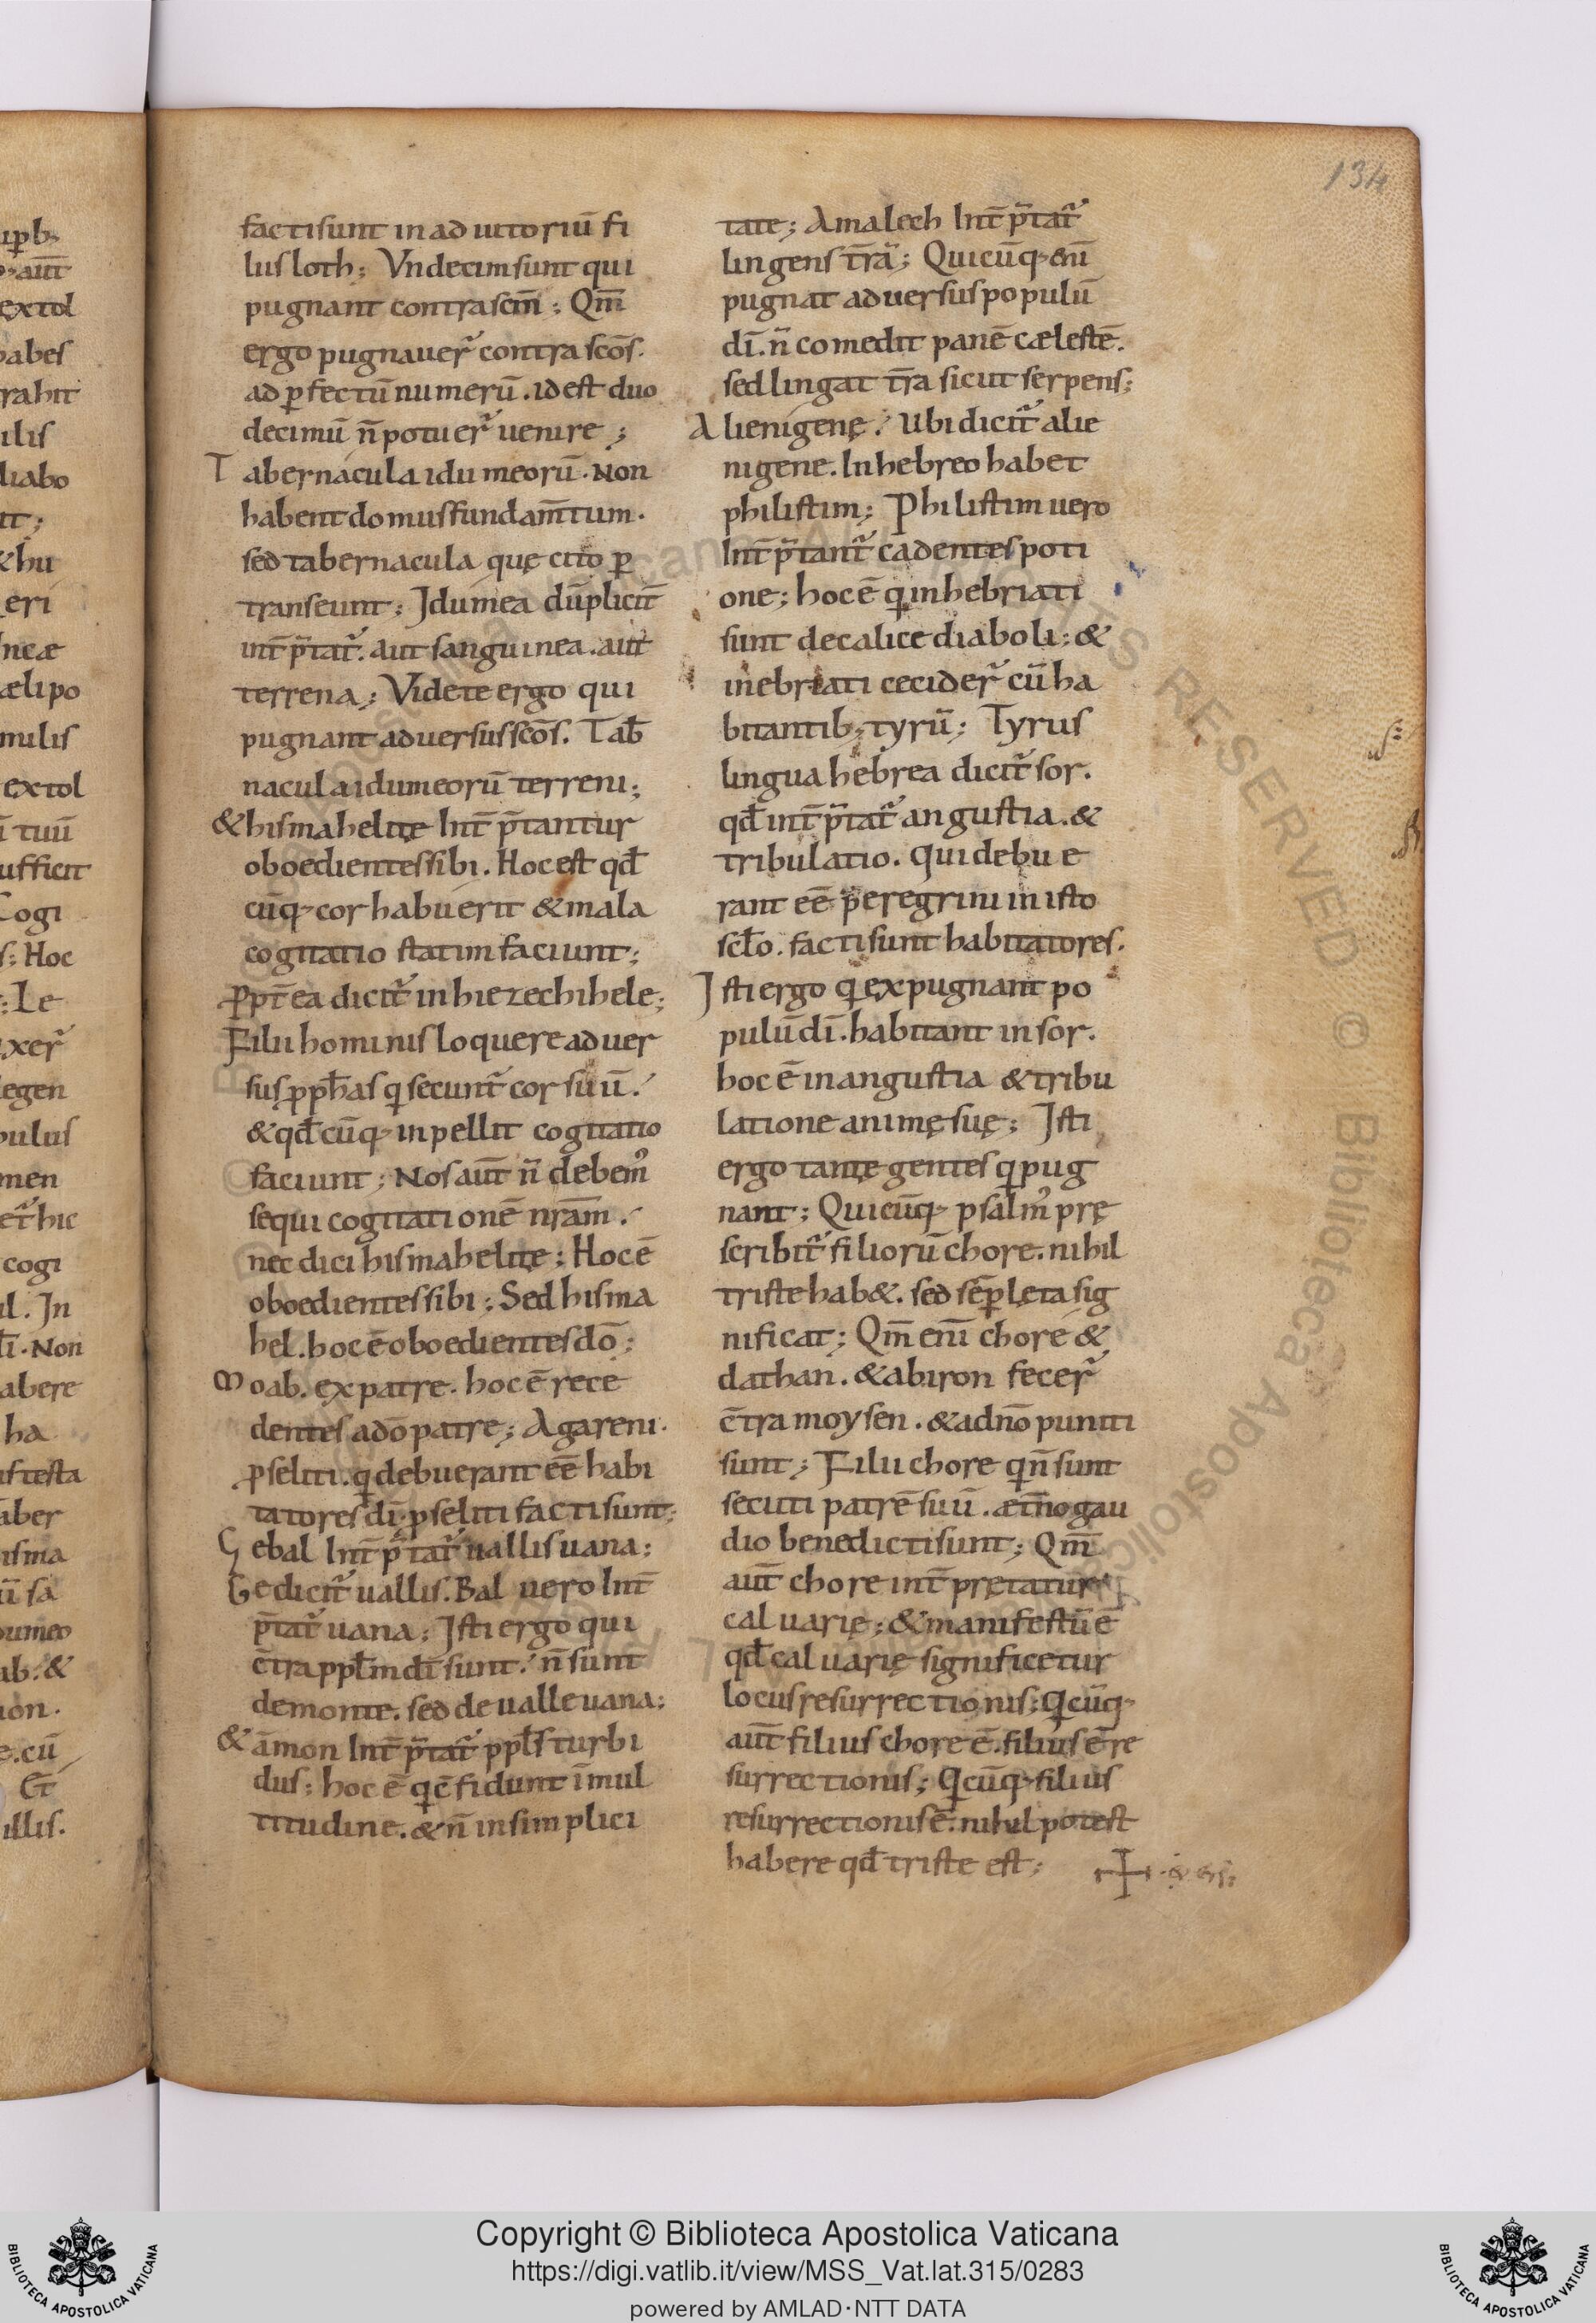 134
factisunt in adiutoriū fi
liis loth; Vndecim sunt qui
pugnant contra scm̄; Qm̄
ergo pugnauer̄ contra scōs.
ad ꝑfectū numerū. id est duo
decimū n̄ potuer̄ uenire;
Tabernacula idumeorū. Non
habent domus fundam̄tum.
sed tabernacula quę cito ꝑ
transeunt; Idumea duplicit̄
int̄p̄tat̄. aut sanguinea. aut
terrena; Videte ergo qui
pugnant aduersus scōs. Tab̄
nacula idumeorū terreni;
& hismahelitę Int̄p̄tantur
oboedientes sibi. Hoc est qd̄
cūq; cor habuerit & mala
cogitatio statim faciunt;
ꝓpt̄ea dicit̄ in hiezechihele;
Filii hominis loquere aduer
sus ꝓph̄as q̄ secunt̄ cor suū.
& qd̄cūq; inpellit cogitatio
faciunt; Nos aut̄ n̄ debem᾿
sequi cogitationē nr̄am.
nec dici hismahelitę; Hoc ē
oboedientes sibi; Sed hisma
hel. hoc ē oboedientes dō;
Moab. ex patre. hoc ē rece
dentes a dō patre; Agareni.
ꝓseliti. q̄ debuerant eē habi
tatores dī. ꝓseliti facti sunt;
Gebal Int̄p̄tat̄ uallis uana;
Ge dicit̄ uallis. Bal uero Int̄
p̄tat̄ uana; Isti ergo qui
c̄tra ppl̄m dī sunt. n̄ sunt
de monte. sed de ualle uana;
& āmon Int̄p̄tat̄ ppl̄s turbi
dus; hoc ē q̄ c̄fidunt ī mul
titudine. & n̄ in simplici
tate; Amalech Int̄p̄tat̄
lingens t̄rā; Quicūq; enī
pugnat aduersus populū
dī. n̄ comedit panē cælestē.
sed lingat t̄ra sicut serpens;
Alienigenę. Ubi dicit̄ alie
nigene. In hebreo habet
philistim; Philistim uero
Int̄p̄tant̄ cadentes poti
one; hoc ē q̄ inhebriati
sunt de calice diaboli; &
inebriati cecider̄ cū ha
bitantib; tyrū; Tyrus
lingua hebrea dicit̄ sor.
qd̄ int̄p̄tat̄ angustia. &
tribulatio. Qui debue
rant eē peregrini in isto
scl̄o. facti sunt habitatores.
Isti ergo q̄ expugnant po
pulū dī. habitant in sor.
hoc ē in angustia & tribu
latione animę suę; Isti
ergo tantę gentes q̄ pug
nant; Quicūq; psalm᾿ prę
scribit̄ filiorū chore. nihil
triste hab&. sed sēꝑ lęta sig
nificat; Qm̄ enī chore &
dathan. & abiron fecer̄
c̄tra moysen. & a dn̄o puniti
sunt; Filii chore q̄ n̄ sunt
secuti patrē suū. æt̄no gau
dio benedicti sunt; Qm̄
aut̄ chore int̄pretatur
caluarię; & manifestū ē
qd̄ caluarię significetur
locus resurrectionis; Q̄cūq;
aut̄ filius chore ē. filius ē re
surrectionis; Q̄cūq; filius
resurrectionis ē. nihil potest
habere qd̄ triste est;
Copyright © Biblioteca Apostolica Vaticana
https://digi.vatlib.it/view/MSS_Vat.lat.315/0283
powered by AMLAD·NTT DATA
BIBLIOTECA APOSTOLICA VATICANA
BIBLIOTECA APOSTOLICA VATICANA